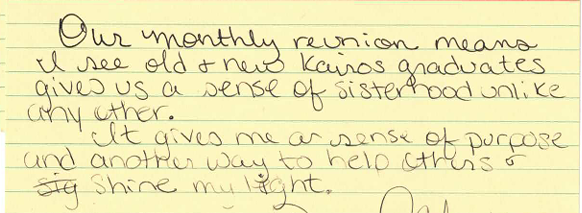 Our monthly reunion means
I see old & new Kairos graduates
gives us a sense of sisterhood unlike
any other.
It gives me a sense of purpose
and another way to help others &
shine my light.